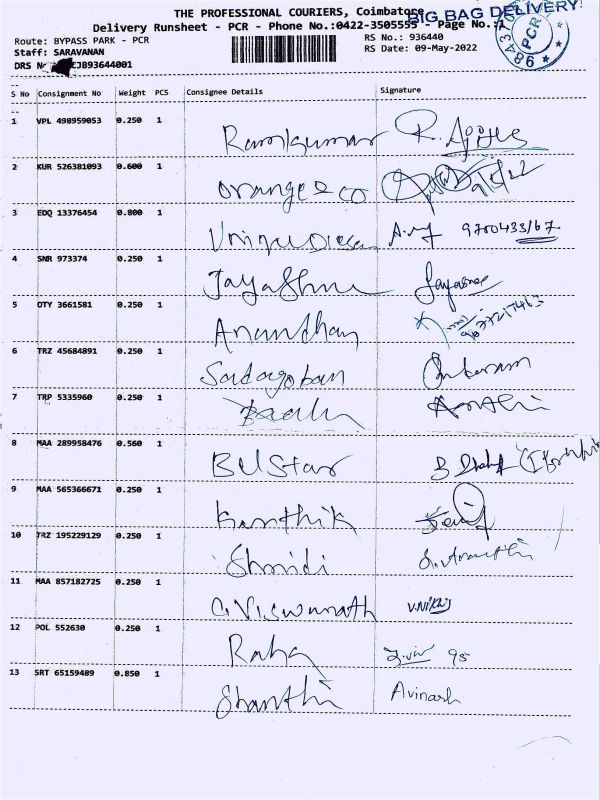 THE PROFESSIONAL COURIERS, Coimbatore
BIG BAG DELIVERY
Delivery Runsheet - PCR - Phone No.:0422-3505555 - Page No.:1
Route: BYPASS PARK - PCR
RS No.: 936440
Staff: SARAVANAN
RS Date: 09-May-2022
DRS EJB93644001
PCR
S No Consignment No Weight PCS Consignee Details Signature
1 VPL 498959053 0.250 1 Ramkumar R.
2 KUR 526381093 0.600 1 Orange & co
3 EDQ 13376454 0.800 1 9780433167
4 SNR 973374 0.250 1 Jayashree Jayasree
5 OTY 3661581 0.250 1 Anandhan
6 TRZ 45684891 0.250 1 Sadagoban
7 TRP 5335960 0.250 1
8 MAA 289958476 0.560 1 Bell Star
9 MAA 565366671 0.250 1 Karthik
10 TRZ 195229129 0.250 1
11 MAA 857182725 0.250 1 G Viswanath
12 POL 552630 0.250 1 95
13 SRT 65159489 0.850 1 Shanthi Avinash